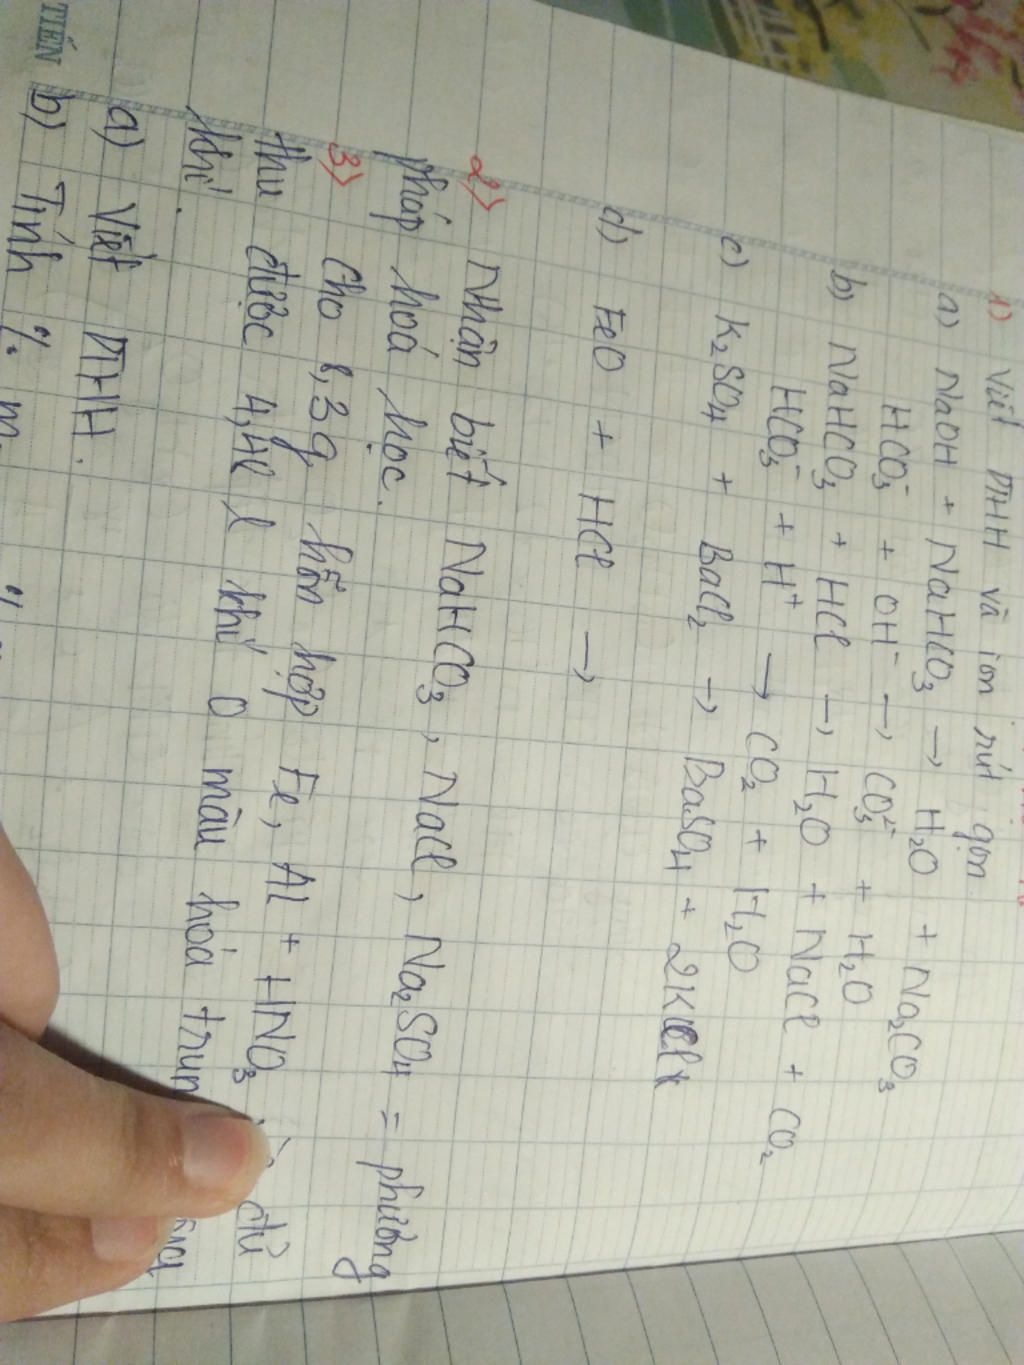 1) Viết PTHH và ion rút gọn.
a) NaOH + NaHCO₃ → H₂O + Na₂CO₃
HCO₃⁻ + OH⁻ → CO₃²⁻ + H₂O
b) NaHCO₃ + HCl → H₂O + NaCl + CO₂
HCO₃⁻ + H⁺ → CO₂ + H₂O
c) K₂SO₄ + BaCl₂ → BaSO₄ + 2KCl
d) FeO + HCl →
2) Nhận biết NaHCO₃, NaCl, Na₂SO₄ = phương
pháp hoá học.
3) Cho 8,3g hỗn hợp Fe, Al + HNO₃ đủ
thu được 4,48 l khí 0 màu hóa trong
khí.
a) Viết PTHH.
b) Tính % m.
TIẾN